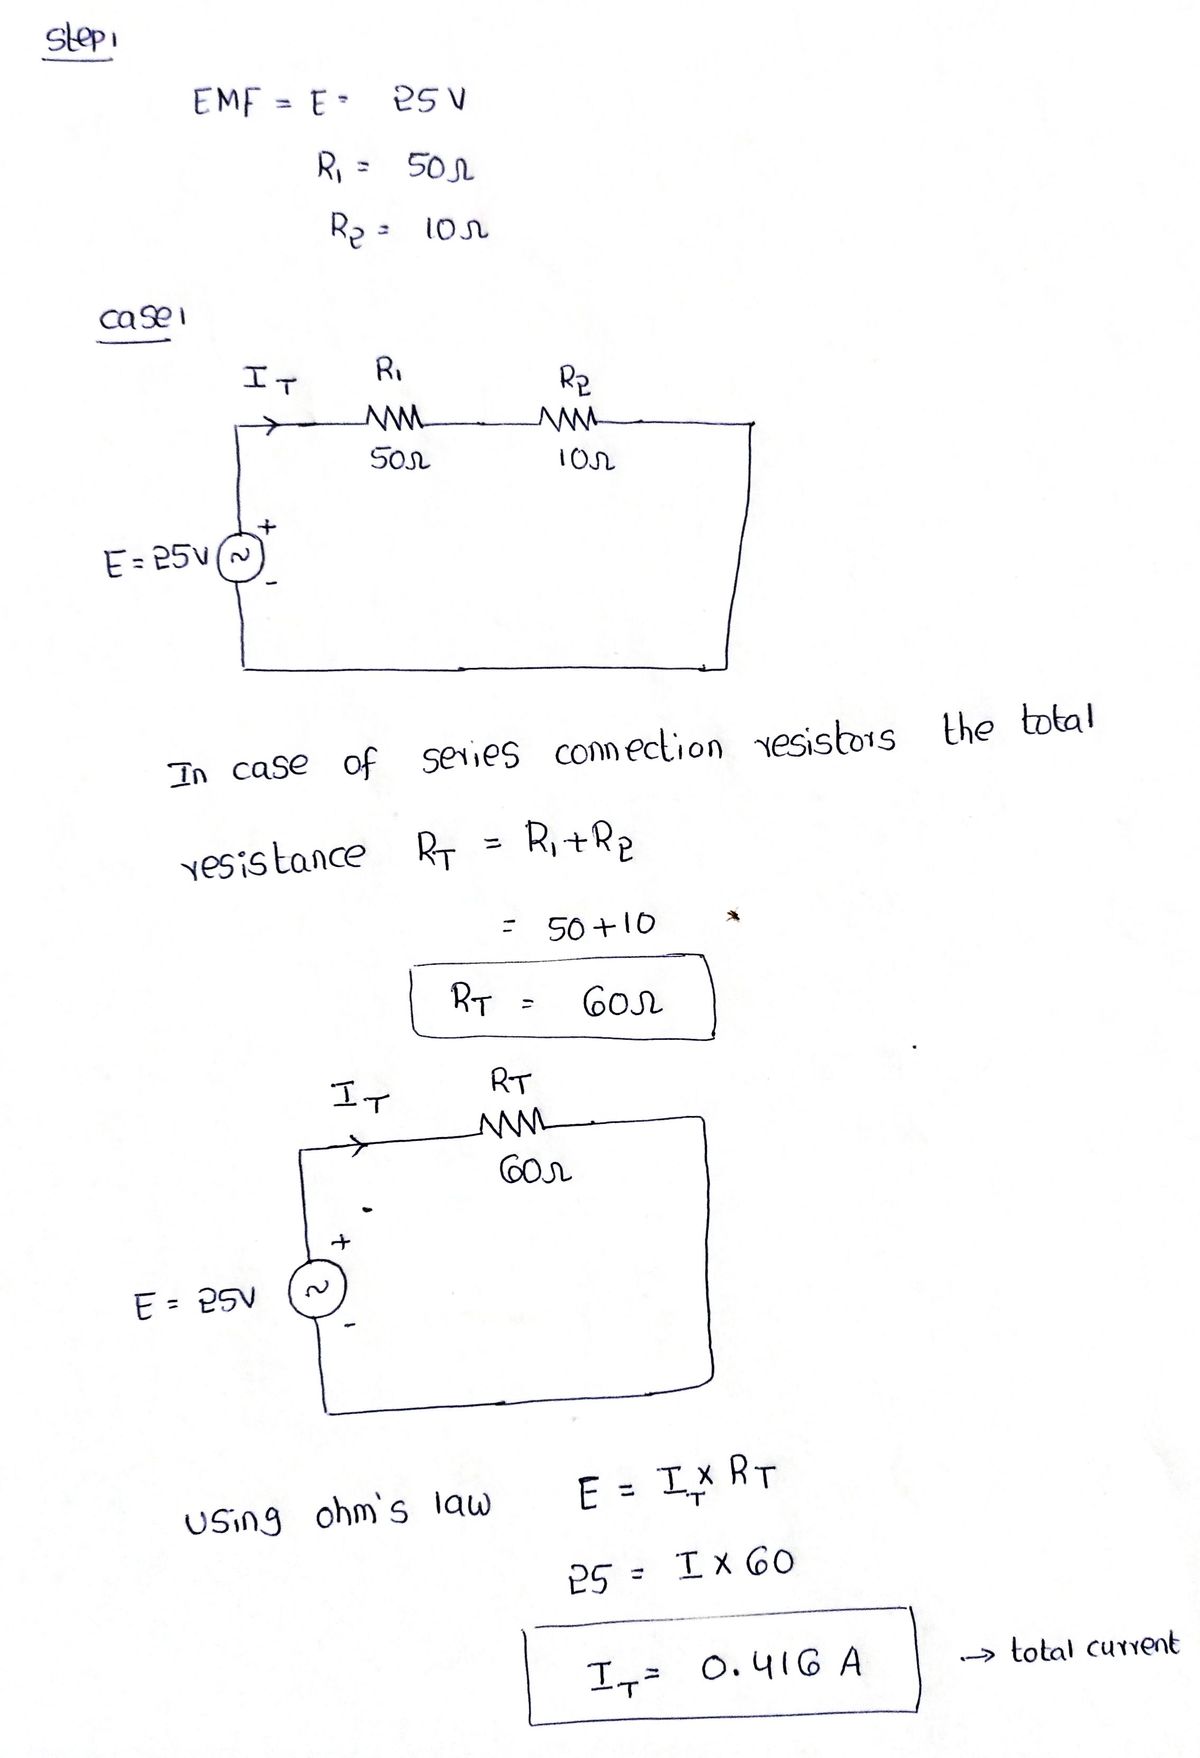 Step1
EMF = E = 25V
R1 = 50Ω
R2 = 10Ω
case1
IT R1 R2
50Ω 10Ω
+
E = 25V ~
-
In case of series connection resistors the total
resistance RT = R1+R2
= 50+10
RT = 60Ω
IT RT
60Ω
+
E = 25V ~
-
using ohm's law E = IT × RT
25 = I × 60
IT = 0.416 A → total current